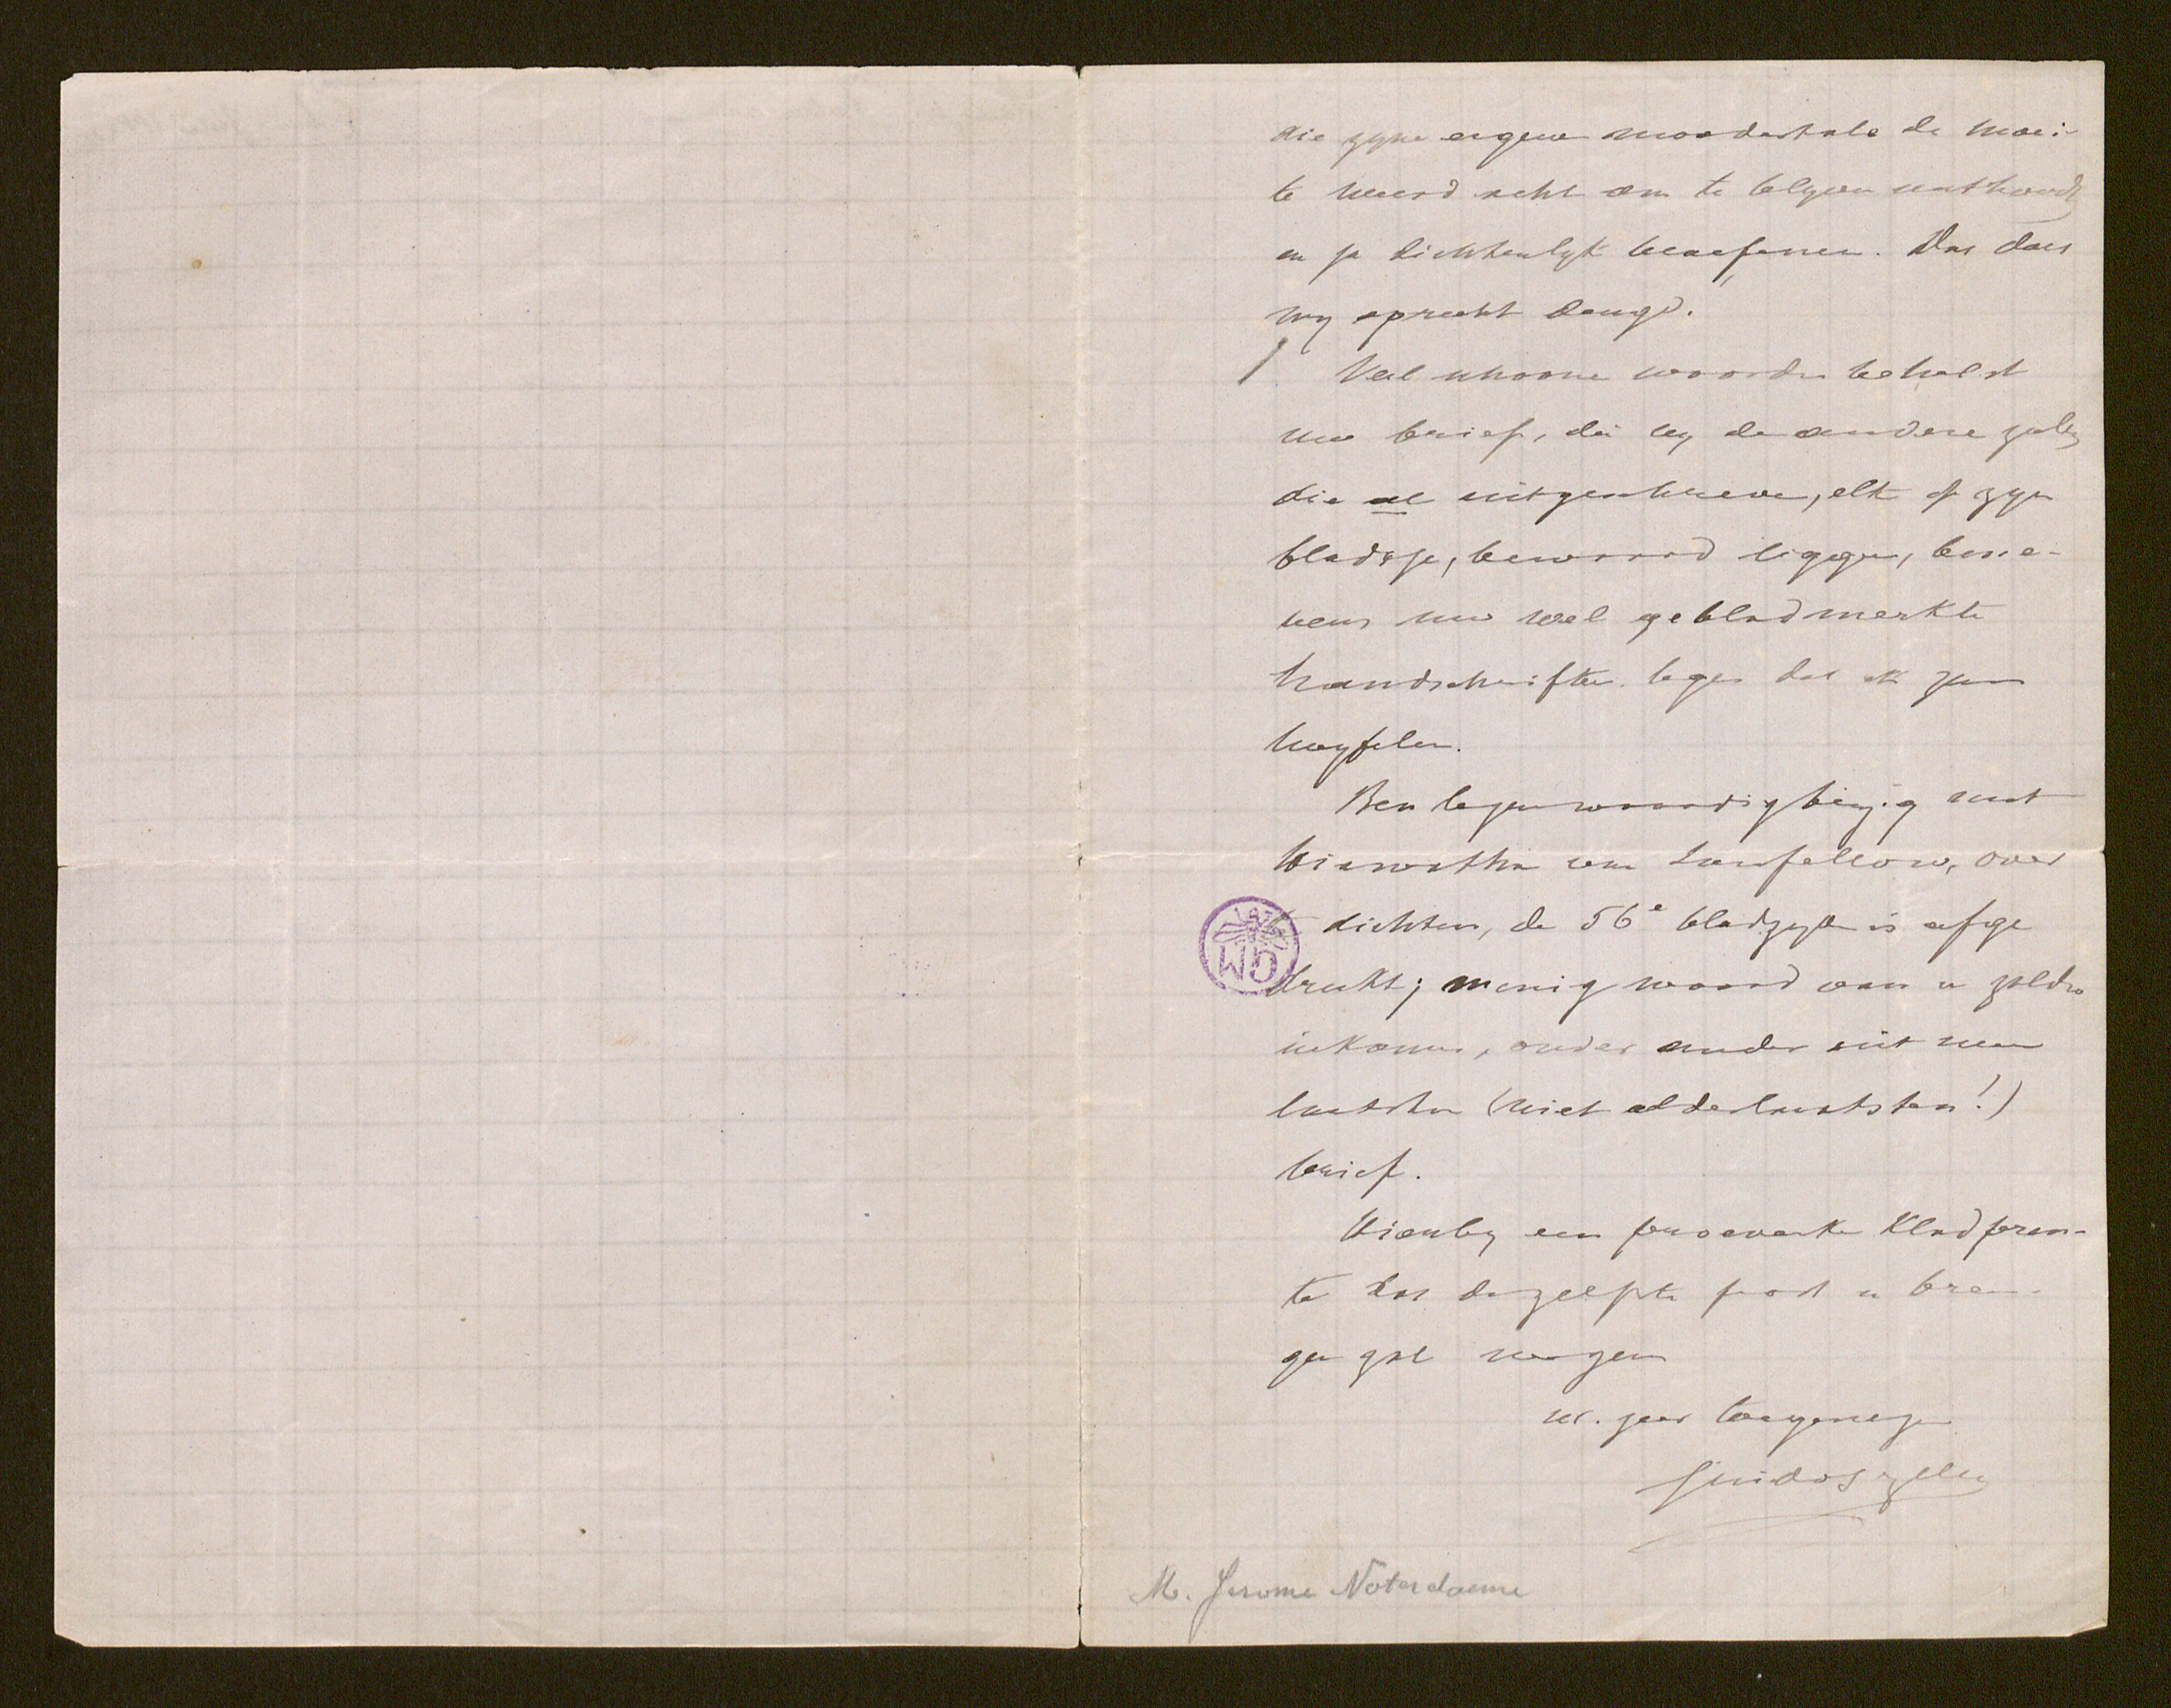 die zyne eigene moedertale de moei-
te weerd acht om te blyven onthouden
en ja dichtenlyk beoefenen. Das daer
my oprecht deugd.
Veel schoone woorden behelst
uw brief, die by de andere zullen
die al uitgeschreven, elk op zyn
bladtje, bewaard liggen, bene-
vens uw wel gebladmerkte
handschriften. leges dat ik zan
twyfelen.
Ben tegenwoordig bezig met
Hiawatha van Lonfellow, over
te dichten, de 56e bladzyde is afge
drukt; menig woord van u zalder
inkomen, onder ander uit uwen
laatsten (niet alderlaatsten!)
brief.
Hiernby een proeverke Kladpren-
te dat dezelfste post u bren-
gen zal mogen
uw. zeer toegenegen
Guido Gezelle
M. Jerome Noterdaeme